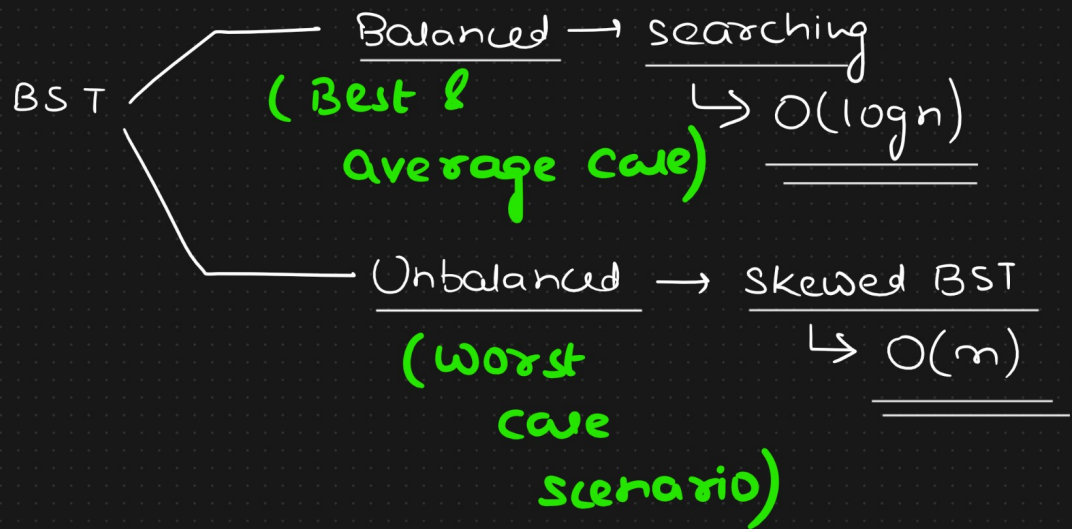 BST
Balanced → searching
(Best &
average case)
↳ O(logn)
Unbalanced → skewed BST
↳ O(n)
(worst
case
scenario)